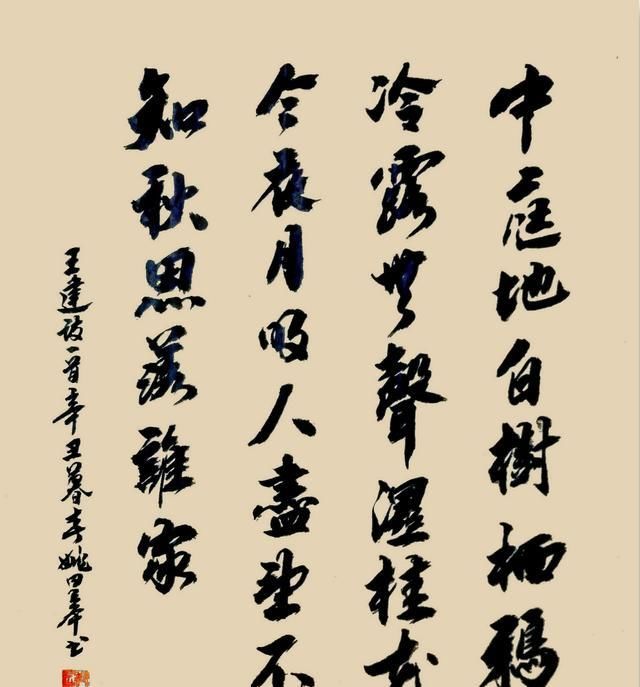 中庭地白樹栖鴉
冷露無聲濕桂花
今夜月明人盡望不
知秋思落誰家
王建詩一首辛丑暮春姚田书